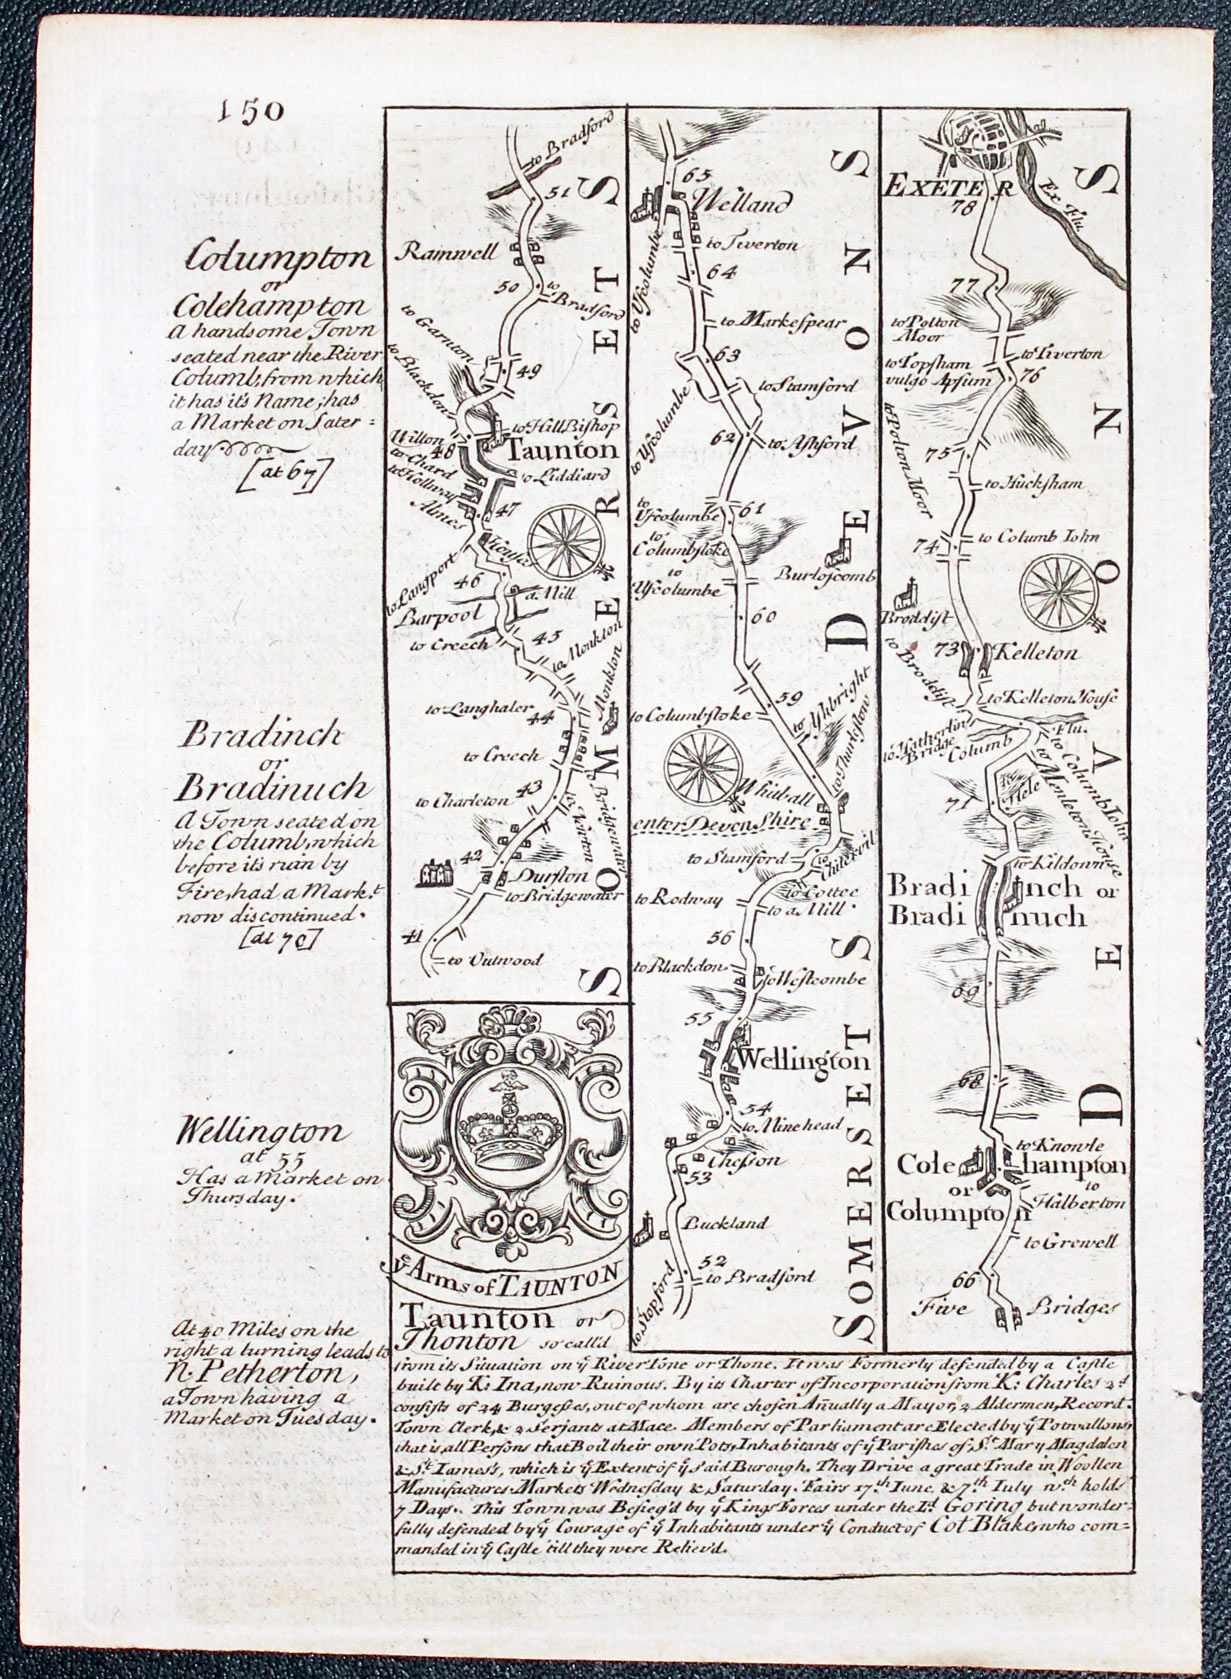 150
Columpton
or
Colehampton
A handsome Town
seated near the River
Columb, from which
it has it's Name; has
a Market on Sater=
day
[at 67]
Bradinch
or
Bradinuch
A Town seated on
the Columb, which
before it's ruin by
Fire, had a Mark.t
now discontinued.
[at 70]
Wellington
at 55
Has a Market on
Thursday.
At 40 Miles on the
right a turning leads to
N. Petherton,
a Town having a
Market on Tuesday.
to Bradford
51
Ramwell
50
to Bradford
to Garnton
49
to Blackdon
to Hill Bishop
Wilton
48
Taunton
to Chard
to Liddiard
to Hollway
Almes
47
House
to Langport
46
a Mill
Barpool
45
to Creech
to Monkton
Monkton
to Langhaler
44
to Creech
43
to Charleton
to Bridgewater
to Newton
42
Durston
to Bridgewater
41
to Outwood
SOMERSET S
ye Arms of TAUNTON
65
Welland
to Tiverton
to Ufcolumbe
64
to Markespear
63
to Stamford
to Ufcolumbe
62
to Ashford
61
to Ufcolumbe
to Columbstoke
Burloscomb
to Ufcolumbe
60
59
to Columbstoke
to Uhbright
to Thurlston
Whitball
enter Devon Shire
to Stamford
to Chilcevil
to Cottee
to Rodway
to a Mill
56
to Blackdon
to Westcombe
55
Wellington
54
to Minehead
Cheston
53
Buckland
52
to Bradford
to Stopford
SOMERSET DEVONS
EXETER
Ex Flu.
78
77
to Polton Moor
to Topsham
vulgo Apsum
to Tiverton
76
to Polton Moor
75
to Hucksham
74
to Columb Iohn
Brodclist
73
Kelleton
to Brodclist
to Kelleton House
to Hatherlin Bridge
Columb Flu.
to Columb Iohn
to Menleton House
to Hele
71
to Kildown
Bradinch or
Bradinuch
69
68
to Knowle
Colehampton
or
Columpton
to Halberton
to Grewell
66
Five Bridges
DEVONS
Taunton or
Thonton so call'd
from its Situation on ye River Tone or Thone. It was formerly defended by a Castle
built by K: Ina, now Ruinous. By its Charter of Incorporation from K: Charles 2d
consists of 24 Burgesses, out of whom are chosen Anually a Mayor, 2 Aldermen, Record.r
Town Clerk, & 2 Serjants at Mace. Members of Parliament are Elected by ye Potwallons,
that is, all Persons that Boil their own Pots, Inhabitants of ye Parishes of St. Mary Magdalen
& St. Iames's, which is ye Extent of ye said Burough. They Drive a great Trade in Woollen
Manufactures. Markets Wednesday & Saturday. Fairs 17th Iune, & 7th Iuly wch. holds
7 Days. This Town was Besieg'd by ye Kings Forces under the Ld. Goring but wonder=
fully defended by ye Courage of ye Inhabitants under ye Conduct of Col. Blake, who com=
manded in ye Castle 'till they were Reliev'd.